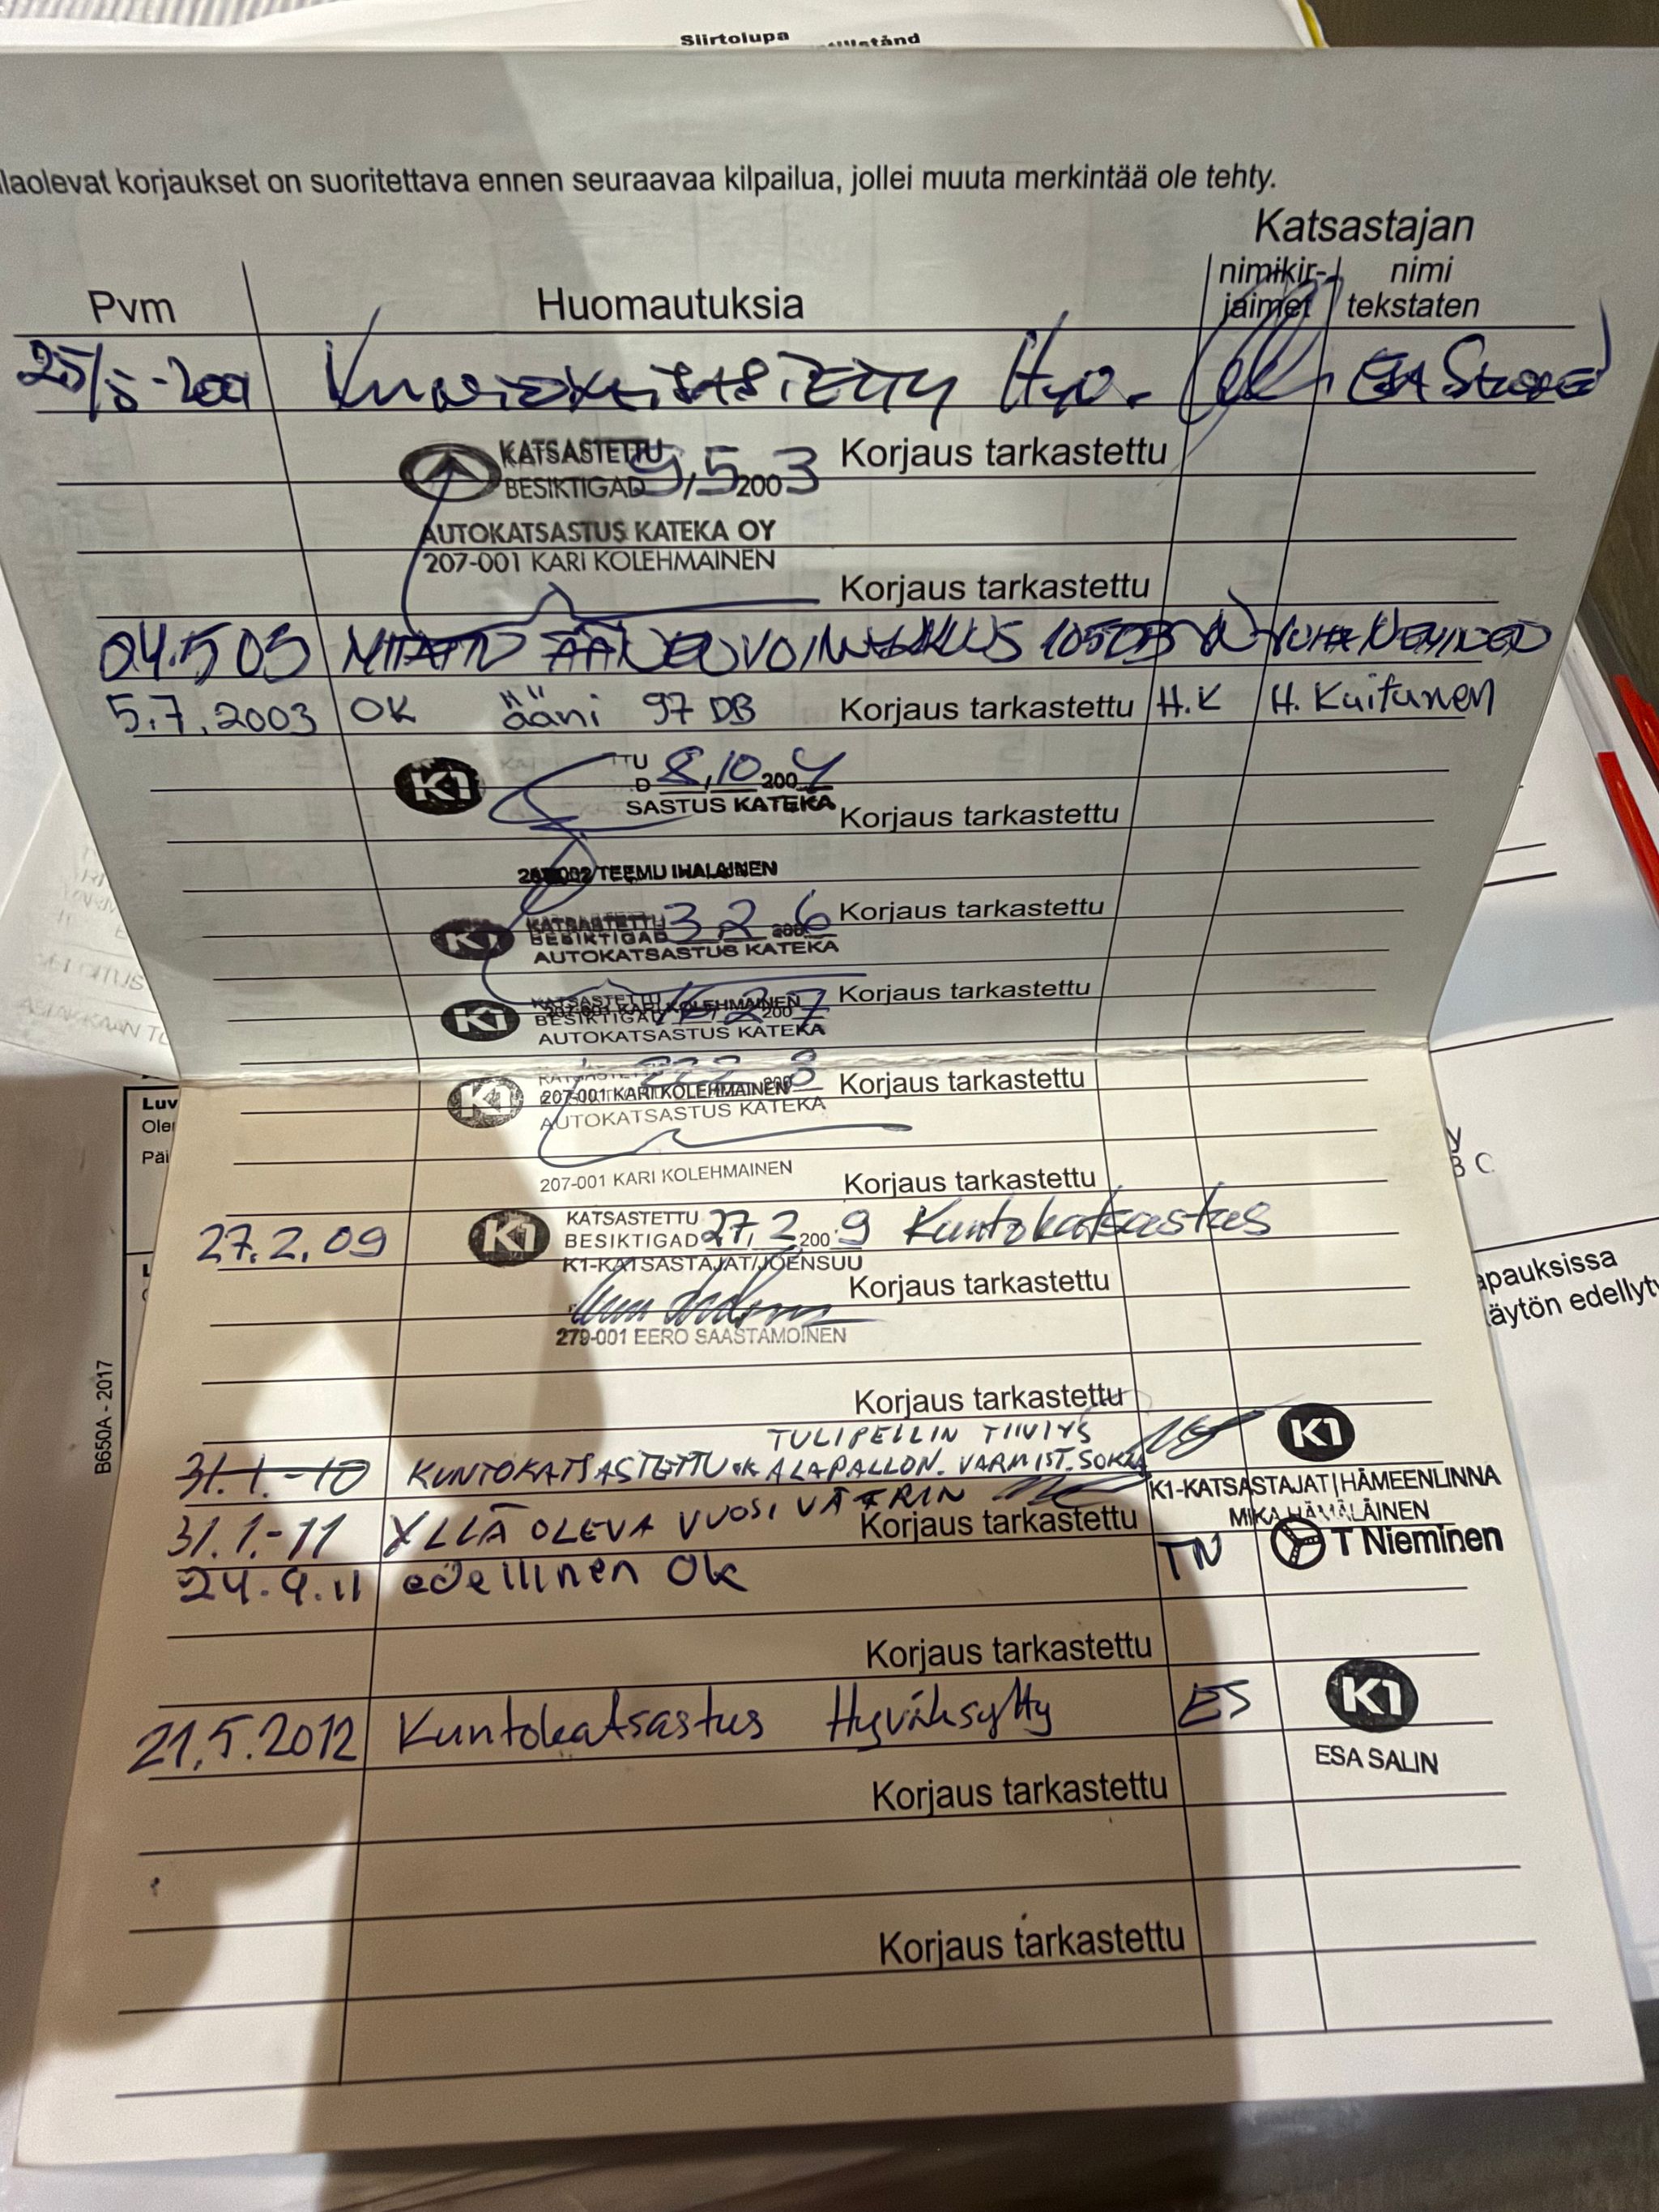 Siirtolupa
llaolevat korjaukset on suoritettava ennen seuraavaa kilpailua, jollei muuta merkintää ole tehty.
Katsastajan
Pvm Huomautuksia nimikir- nimi
jaimet tekstaten
Hyv. ESA
KATSASTETTU 9,5 2003 Korjaus tarkastettu
BESIKTIGAD
AUTOKATSASTUS KATEKA OY
207-001 KARI KOLEHMAINEN
Korjaus tarkastettu
04.5 03 MITATTU ÄÄNENVOIMAKKUUS 105DB
5.7.2003 OK ääni 97 DB Korjaus tarkastettu H.K H. Kuitunen
K1 TTU 8,10 2004
D
SASTUS KATEKA Korjaus tarkastettu
TEEMU IHALAINEN
K1 KATSASTETTU 3 2 2006 Korjaus tarkastettu
BESIKTIGAD
AUTOKATSASTUS KATEKA
K1 KATSASTETTU 2 2007 Korjaus tarkastettu
207-001 KARI KOLEHMAINEN
BESIKTIGAD
AUTOKATSASTUS KATEKA
K1 2008 Korjaus tarkastettu
207-001 KARI KOLEHMAINEN
AUTOKATSASTUS KATEKA
207-001 KARI KOLEHMAINEN Korjaus tarkastettu
27.2.09 K1 KATSASTETTU 27,2 2009 Kuntokatsastus
BESIKTIGAD
K1-KATSASTAJAT/JOENSUU
Korjaus tarkastettu
279-001 EERO SAASTAMOINEN
Korjaus tarkastettu
TULIPELLIN TIIVIYS K1
31.1.-10 KUNTOKATSASTETTU OK ALAPALLON. VARMIST. SOKKA
K1-KATSASTAJAT|HÄMEENLINNA
MIKA HÄMÄLÄINEN
31.1.-11 YLLÄ OLEVA VUOSI VÄÄRIN Korjaus tarkastettu
24.9.11 edellinen Ok TN T Nieminen
Korjaus tarkastettu
21.5.2012 Kuntokatsastus Hyväksytty ES K1
ESA SALIN
Korjaus tarkastettu
Korjaus tarkastettu
Luv
Päi
B650A - 2017
apauksissa
äytön edellyt